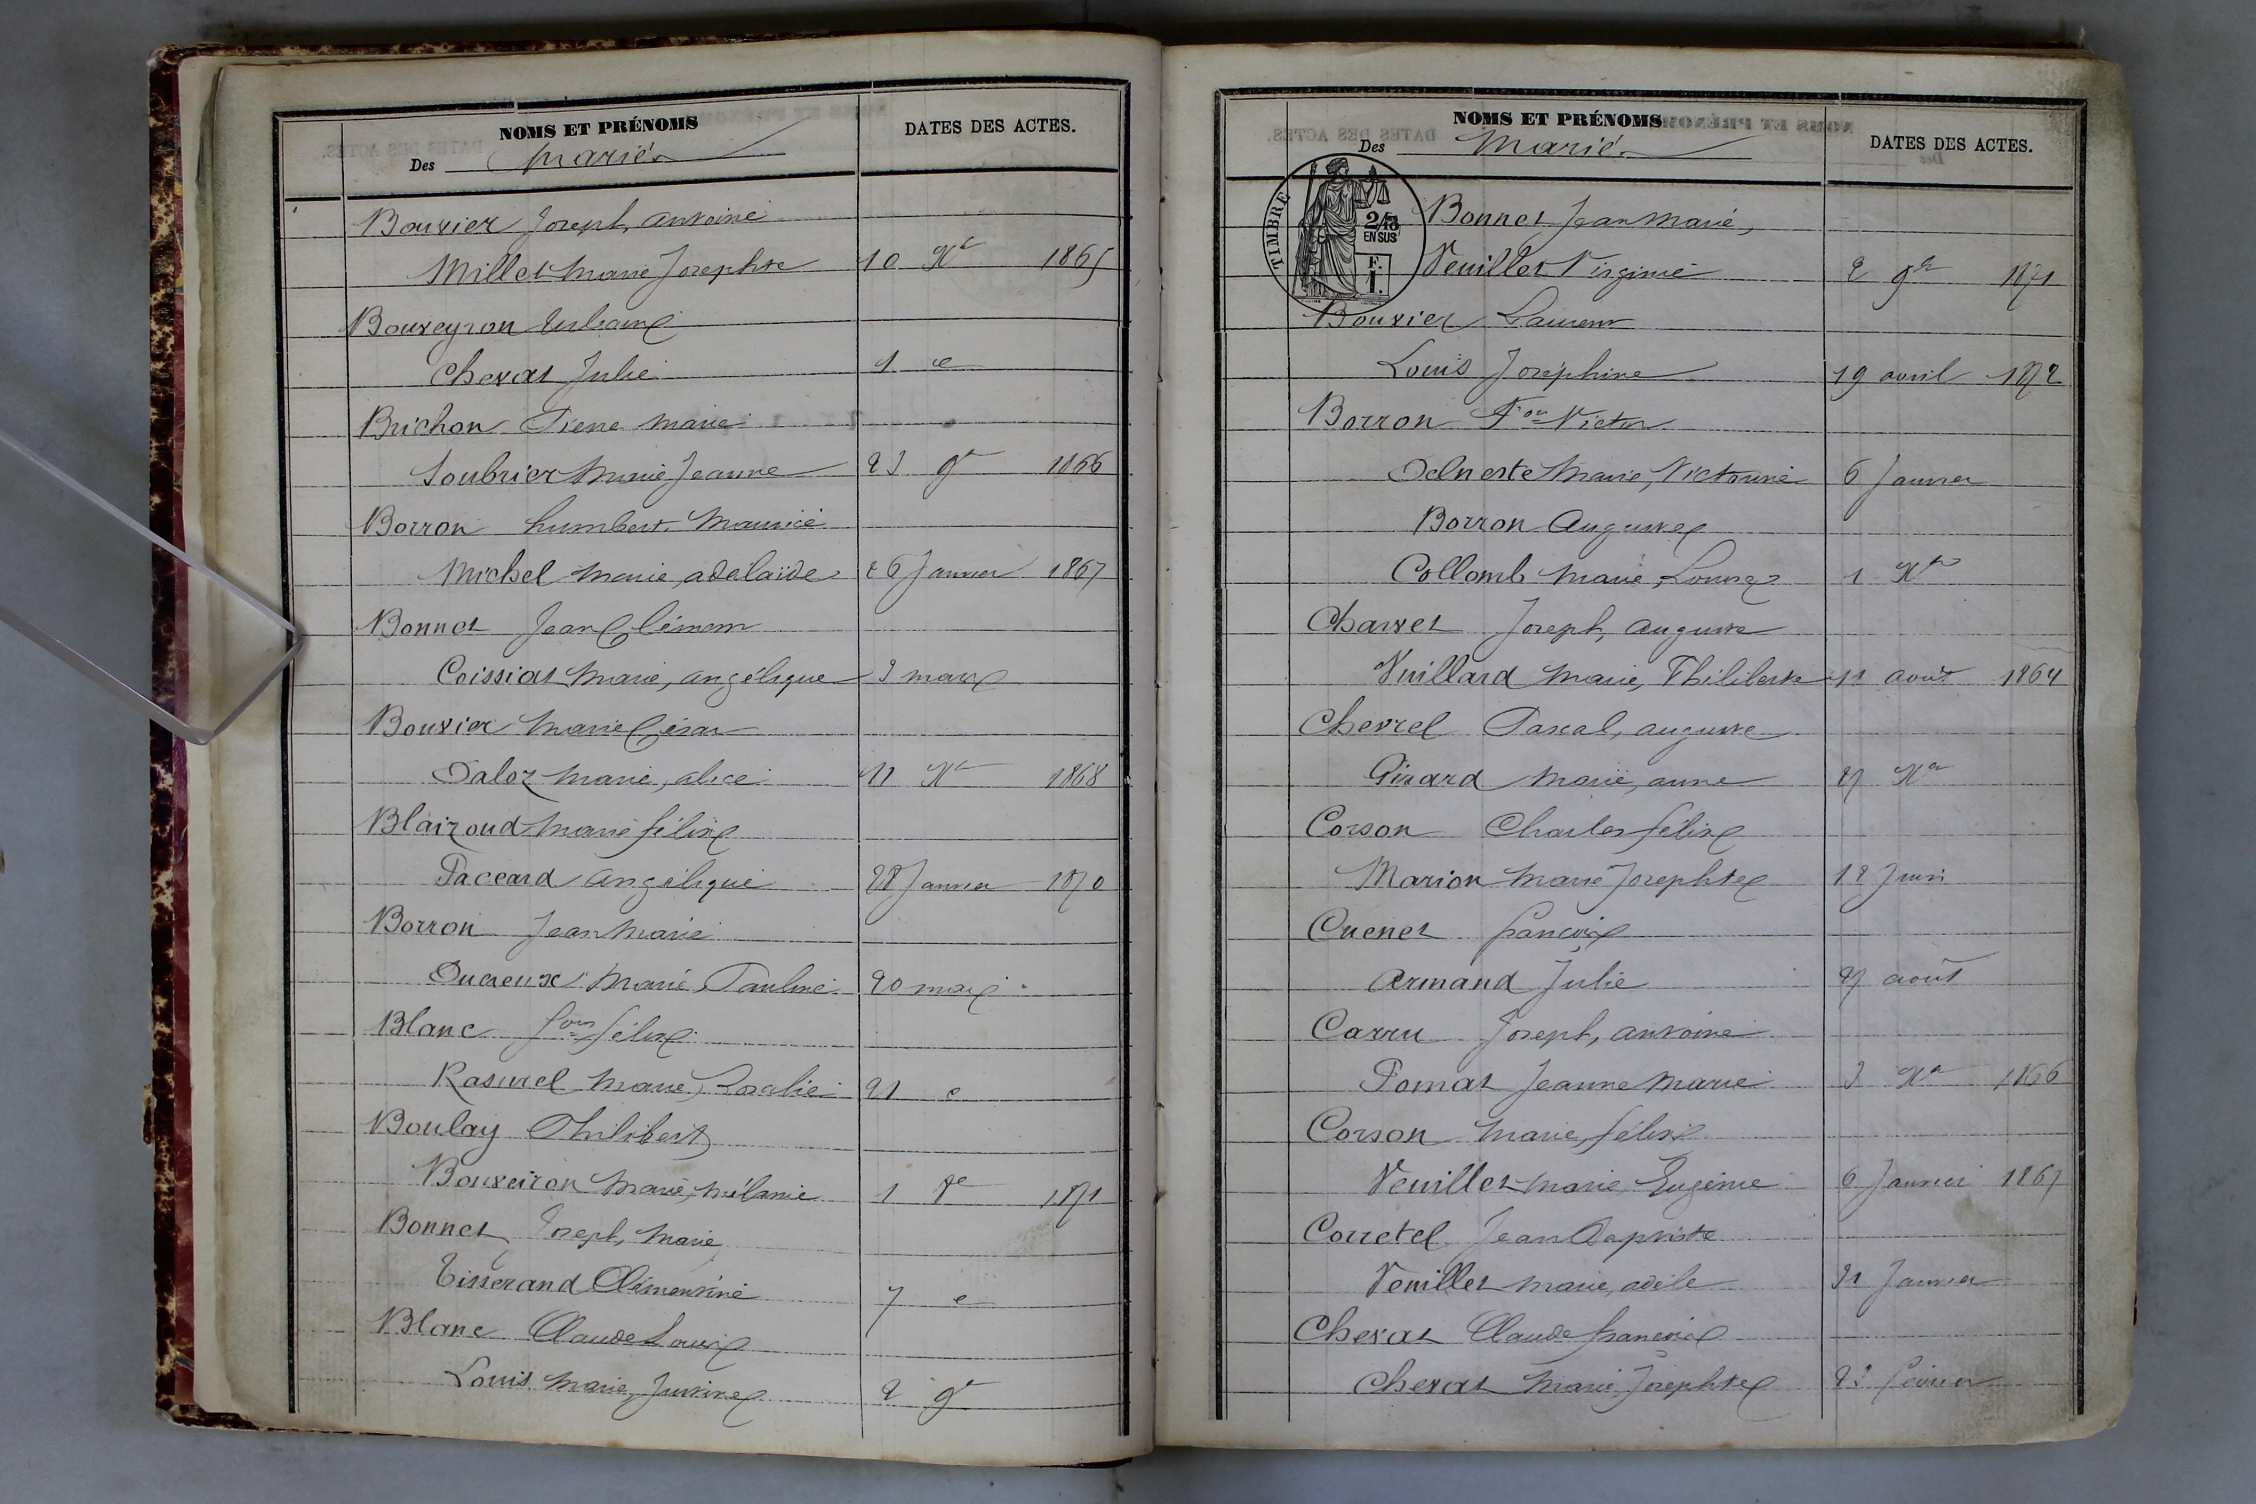 NOMS ET PRÉNOMS
Des Mariés
DATES DES ACTES.
Bouvier Joseph, antoine
Millet marie Josephte 10 Xe 1865
Bouveyron Urbain
Chevat Julie 1 e
Brichon Pierre marie
Soubrier Marie Jeanne 23 9e 1866
Borron humbert Maurice
Michel marie adelaïde 26 Janvier 1867
Bonnet Jean Clément
Coissiat Marie, angélique 3 mars
Bouvier Marie César
Daloz marie, alice 11 Xe 1868
Blaizoud Marie félix
Paccard Angélique 28 Janvier 1870
Borron Jean Marie
Ducreux Marie Pauline 20 mai
Blanc fois félix
Rasurel Marie, Rosalie 21 e
Boulay Philibert
Bouveiron Marie, mélanie 1 8e 1871
Bonnet Joseph, Marie
Tisserand Clémentine 7 e
Blanc Claude Louis
Louis Marie, Justine 2 9e
NOMS ET PRÉNOMS
Des Mariés
DATES DES ACTES.
TIMBRE
2/10
EN SUS
F.
1.
Bonnet Jean Marie,
Veuillet Virginie 2 9e 1871
Bouvier Laurent
Louis Joséphine 19 avril 1872
Borron Fois Victor
Delneste Marie, Victorine 6 Janvier
Borron Auguste
Collomb Marie, Louise 1 Xbre
Charvet Joseph, auguste
Vuillard Marie, Philiberte 11 août 1864
Chevrel Pascal, auguste
Girard Marie, anne 27 Xe
Corson Charles félix
Marion Marie Josephte 12 Juin
Cuenet françois
Armand Julie 27 août
Carru Joseph, antoine
Pomat Jeanne Marie 3 Xe 1866
Corson Marie, félix
Veuillet Marie Eugénie 6 Janvier 1867
Corretel Jean Baptiste
Veuillet marie, adèle 31 Janvier
Chevat Claude françois
Chevat Marie, Josephte 23 février